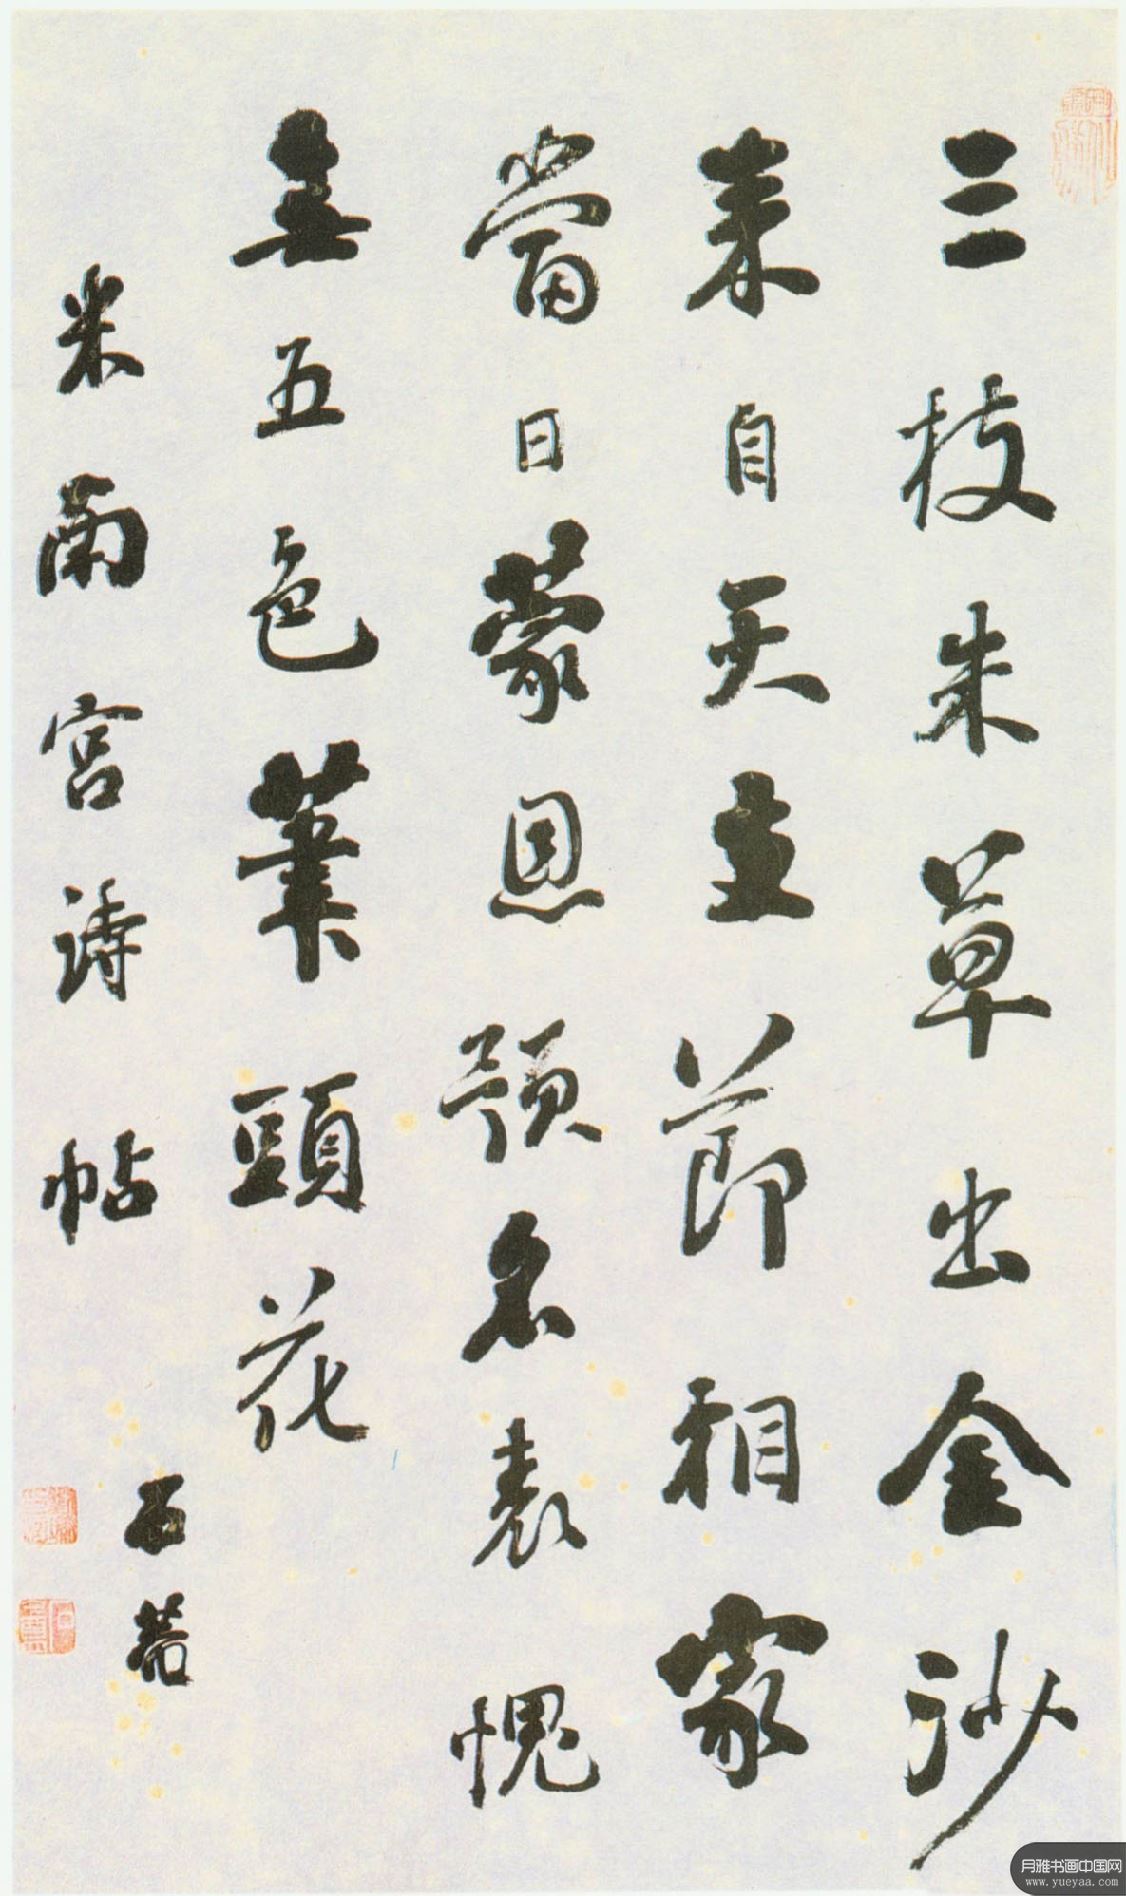 三枝朱草出金沙
来自天節相家
當日蒙恩預名表愧
無五色筆頭花
米南宮詩帖
石菴
月雅书画中国网
www.yueyaa.com